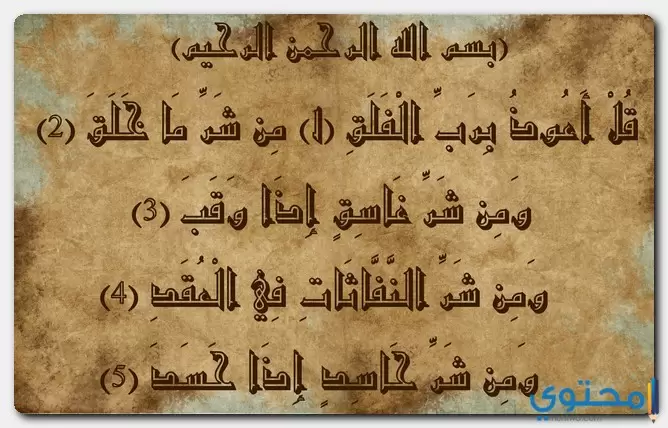 (بسم الله الرحمن الرحيم)
قُلْ أَعُوذُ بِرَبِّ الْفَلَقِ (1) مِن شَرِّ مَا خَلَقَ (2)
وَمِن شَرِّ غَاسِقٍ إِذَا وَقَبَ (3)
وَمِن شَرِّ النَّفَّاثَاتِ فِي الْعُقَدِ (4)
وَمِن شَرِّ حَاسِدٍ إِذَا حَسَدَ (5)
محتوى